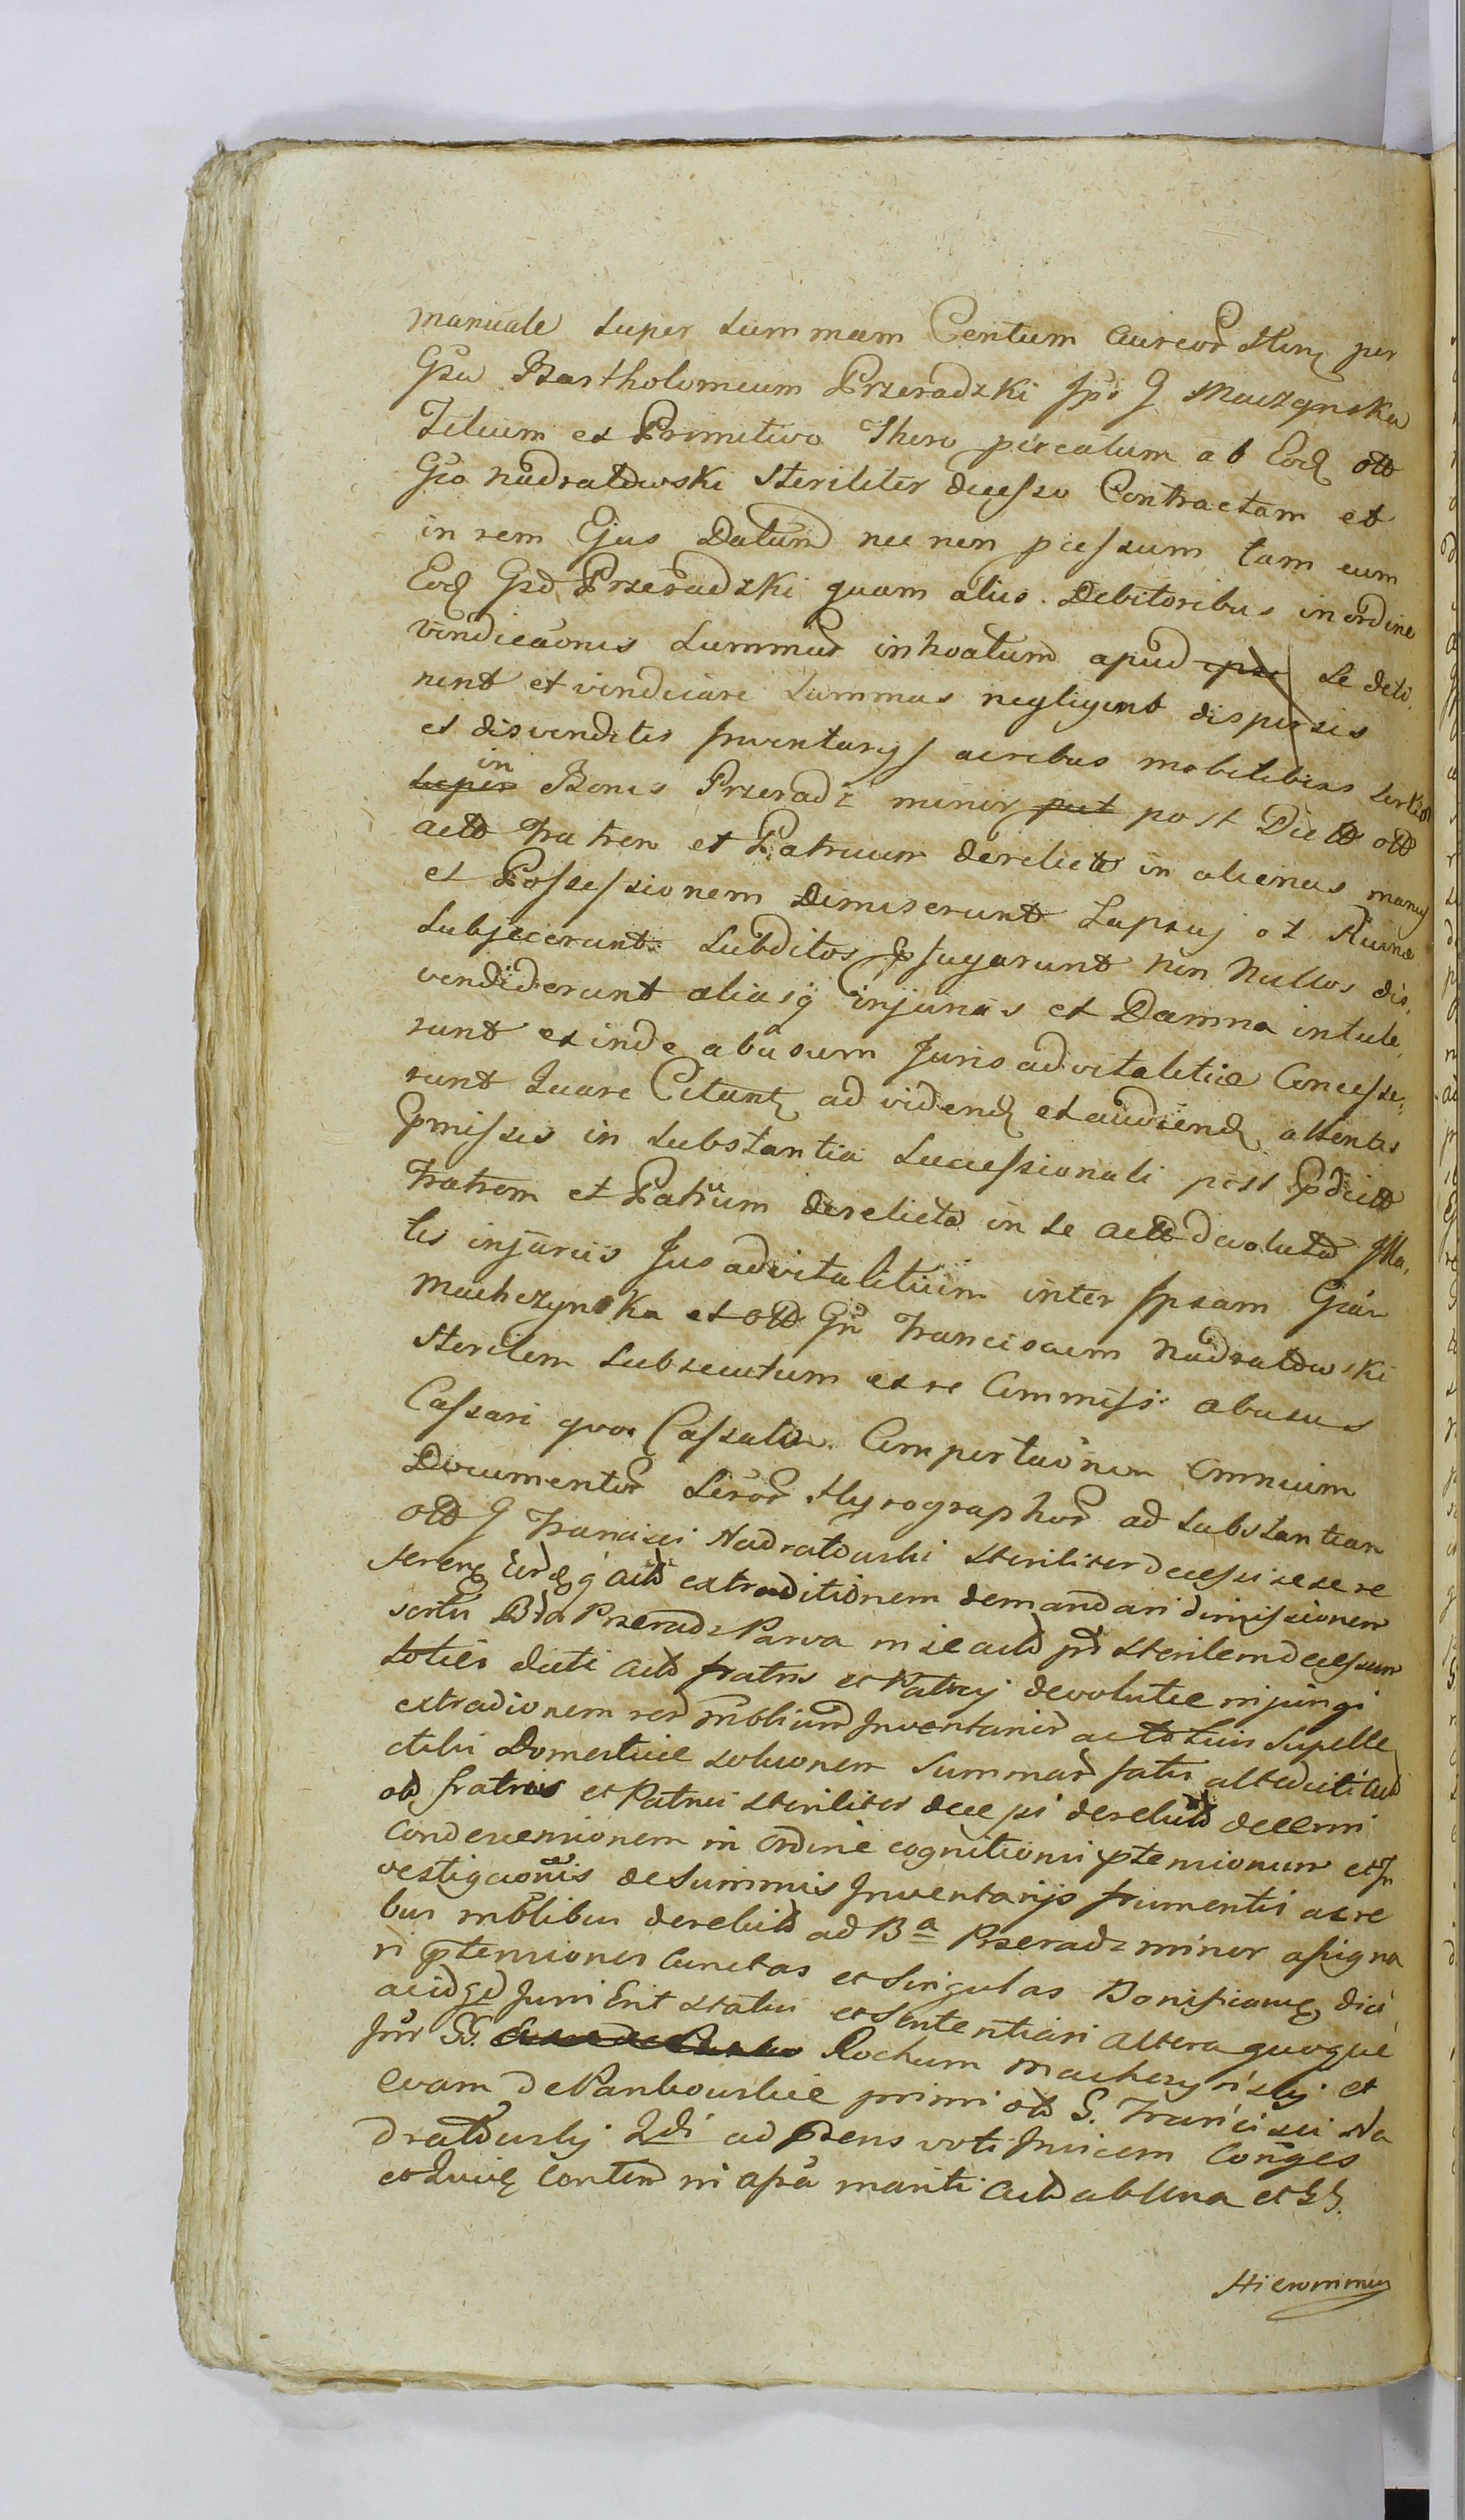 manuale super summam Centum aureor Hung per
Gsu Bartholomeum Przeradzki Ips G Maczynska
Filium ex Primitivo Thoro procreatum ab Eod ott
Gso Nadratowski steriliter decesso Contractam et
in rem Ejus Datum nec non processum tam cum
Eod Gsd Przeradzki quam alijs Debitoribus in ordine
vindicaonis summar inhoatum apud ipse se deti,
nent et vindicare summas negligunt dispersis
et disvenditis Inventarijs aeribus mobilibus sortem
super in Bonis Przeradz minor put post Dictt ott
actt Fratrem et Patruum derelictt in alienas manus
et Possessionem Dimiserunt Lapsui et Ruinae
subjecerunt subditos profugarunt non Nullos dis,
vendiderunt aliasq injurias et Damna intule,
runt exinde abusum Juris advitalitiae Concesse,
runt Quare Citant ad videnд et audiend attentis
praemissis in substantia successionali post praedictt
Fratrem et Patruum derelicta in se actt devoluta Illa,
tis injuriis Jus advitalitium inter Ipsam Gsam
Machczynska et ott Gn Franciscum Nadratowski
sterilem subsecutum ex re Commissi abusus
Cassari quo Cassato Comportaonem omnium
Documentor Liror Chyrographor ad substantiam
ott G Francisci Nadratowski steriliter decessi sese re
feren Eorq actt extraditionem demandari dimissionem
sortis Bdo Przeradz Parva in se actt post sterilem decessum
toties dicti actt fratris et Patruj devolutae injungi
extradionem rer mblium Inventarior actt suis supelle,
ctilis Domesticae soluonem Summar satis altedictt
ott fratris et Patrui steriliter decessi derelictt decerni
Condescensionem in ordine cognitionis ptensionum et In
vestigaonis de Summis Inventarijs frumentis ac re
bus mblibus derelictt ad Ba Przeradz minor assigna
ri ptensiones cunctas et Singulas Bonificand dici
acidqd Juris Erit statui et Sententiari altera quoque
Inr GG. Rochum Machczynskj et
Evam de Pankowskie primi ott G. Francisci Na
dratowskj 2di ad praesens voti Invicem Conjges
et Lucie Conten in assa mariti actt ab Una et GG.
Hieronimus